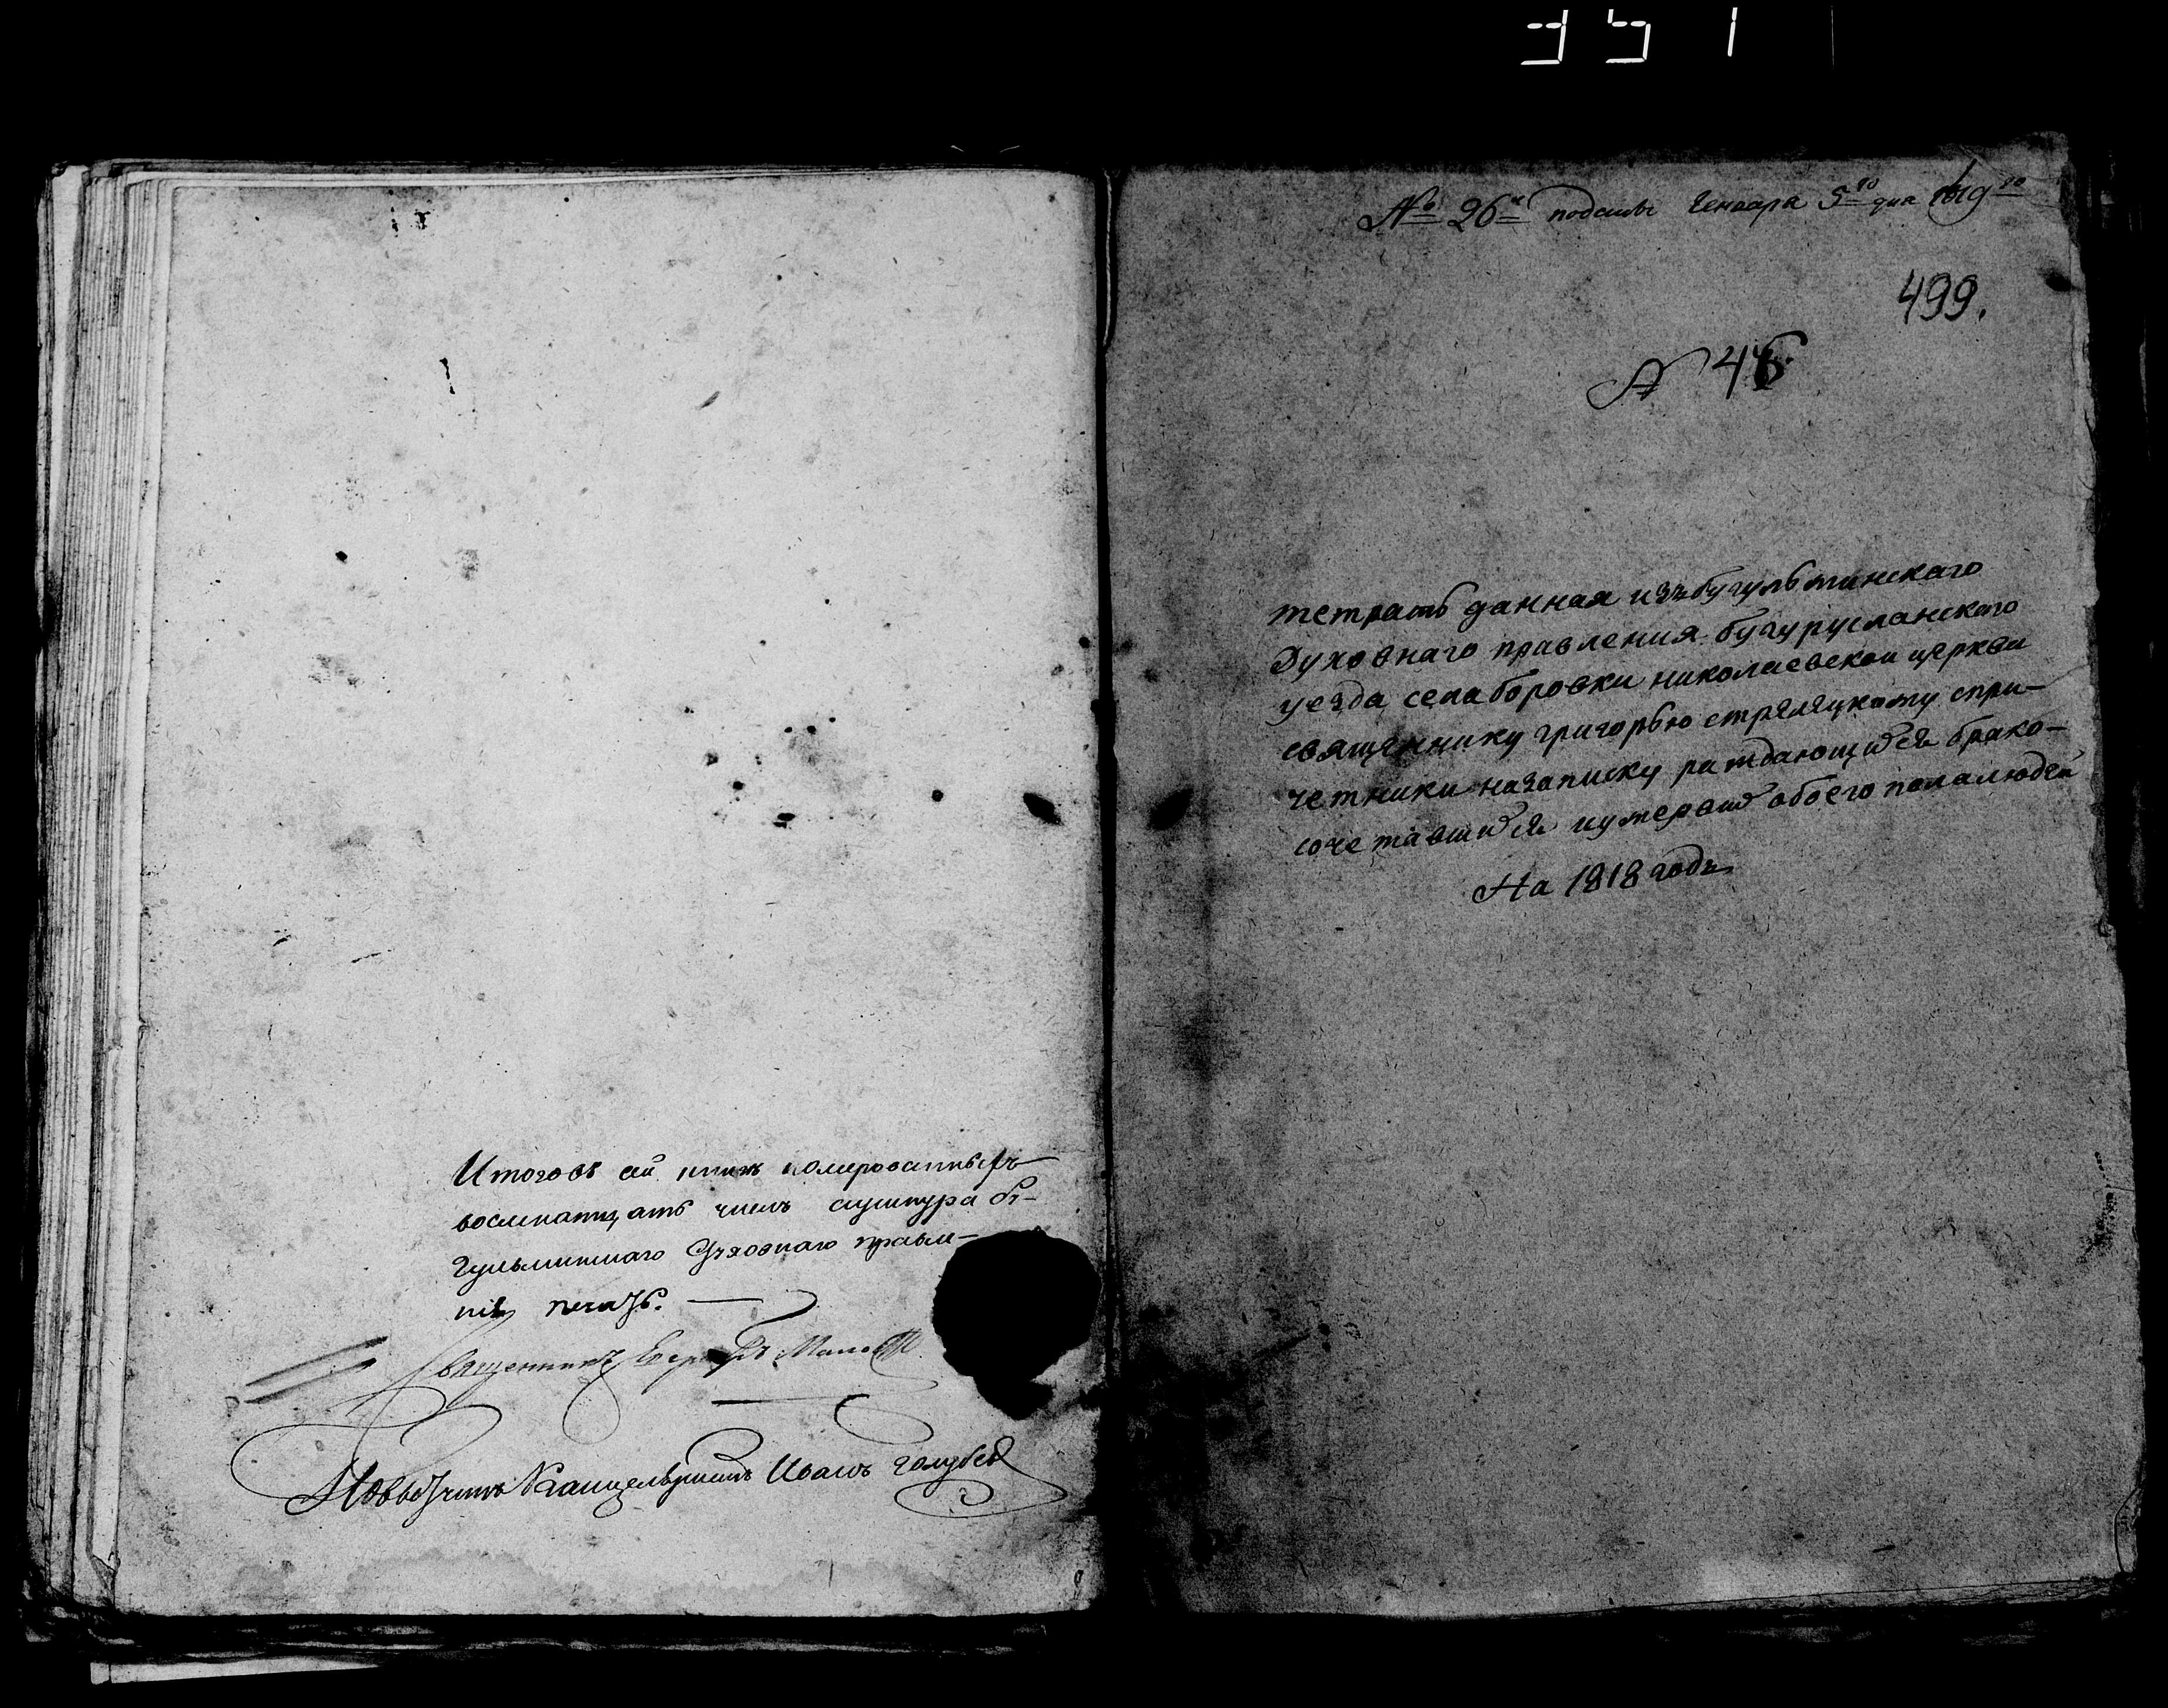 351
Итого въ сей книге номерованныхъ
восемнатцать числъ сушнура бу-
гульминскаго Духовнаго правле-
нія печать.
Священникъ
Повытчикъ Канцеляристъ Иванъ Голубев
№ 26й подана Генваря 5го дня 1819го
499.
№ 45
тетрать данная изъ бугульминскаго
Духовнаго правления бугурусланскаго
уезда села боровки николаевскои церкви
священнику григорью стрелецкому спри-
четники назаписку раждающихся брако-
сочетавшихся иумерших обоего пола людей
На 1818 годъ